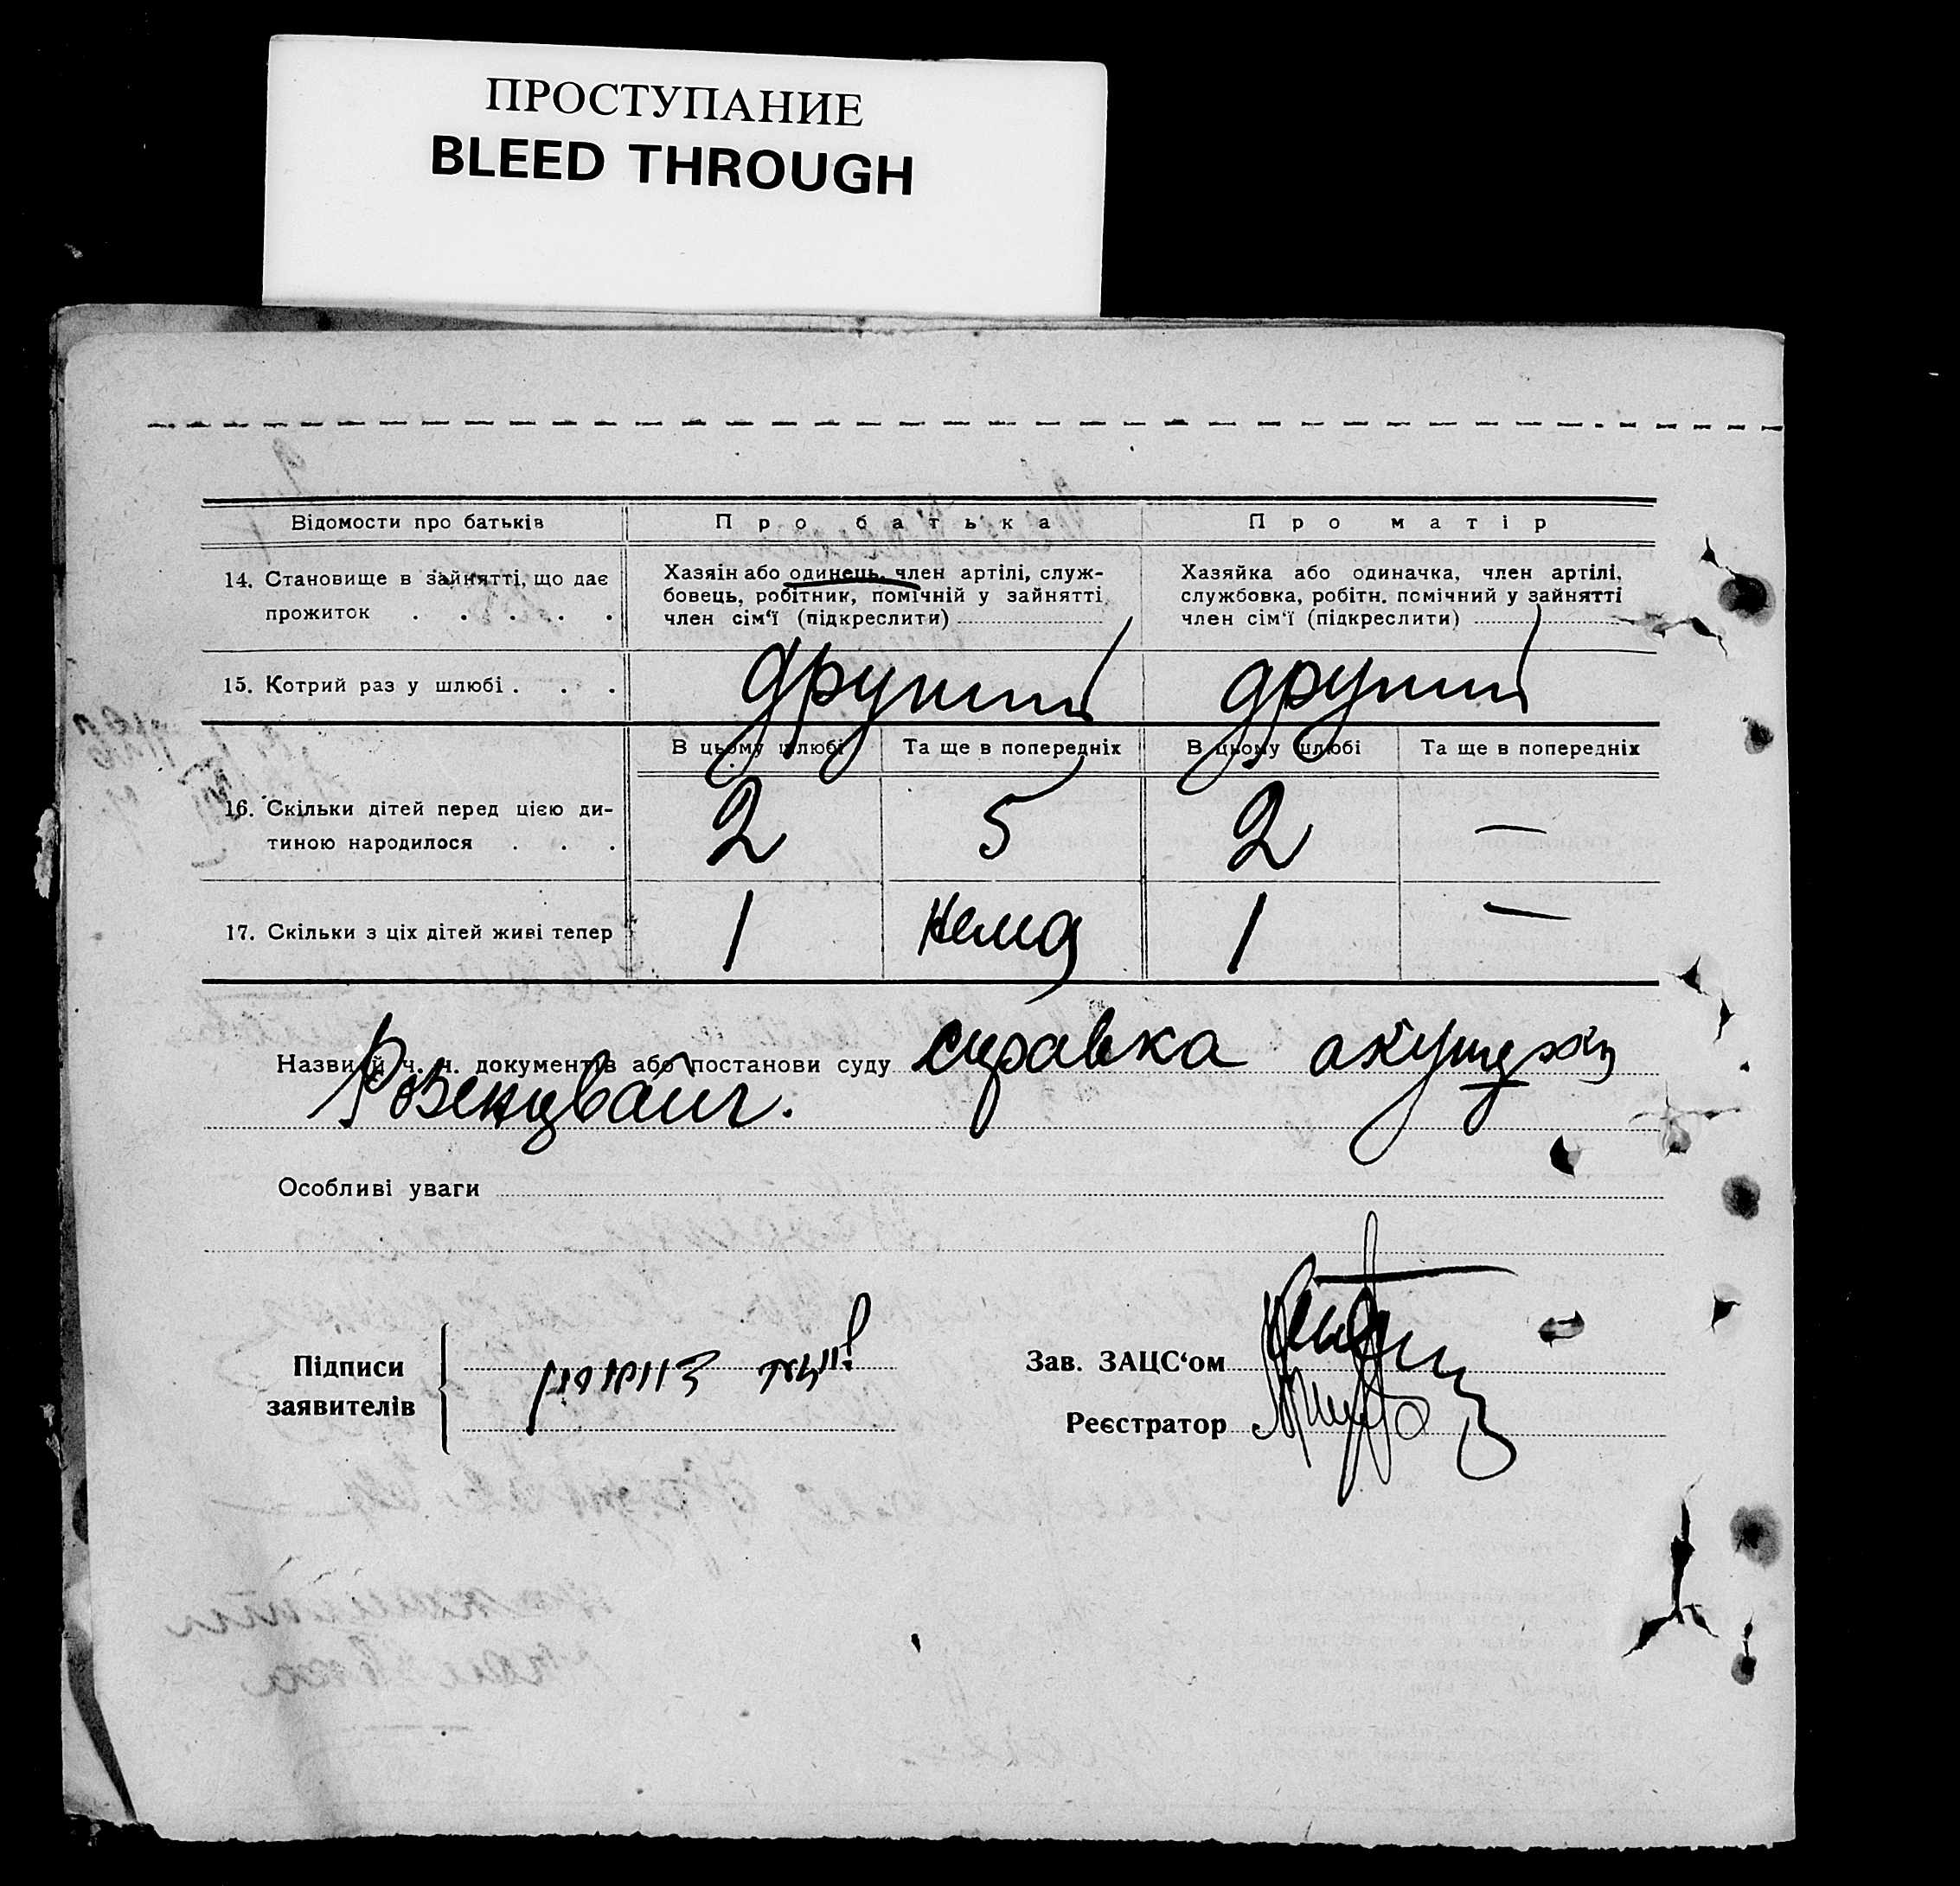 ПРОСТУПАНИЕ
BLEED THROUGH
Відомости про батьків
Про батька
Про матір
14. Становище в зайнятті, що дає
прожиток . . . . .
Хазяін або одинець, член артілі, служ-
бовець, робітник, помічній у зайнятті
член сім‘ї (підкреслити)
Хазяйка або одиначка, член артілі,
службовка, робітн. помічний у зайнятті
член сім‘ї (підкреслити)
15. Котрий раз у шлюбі . . .
другий
другий
В цьому шлюбі
Та ще в попередніх
В цьому шлюбі
Та ще в попередніх
16. Скільки дітей перед цією ди-
тиною народилося . . .
2
5
2
—
17. Скільки з ціх дітей живі тепер
1
нема
1
—
Назви й ч. ч. документів або постанови суду справка акушерки
Розенцвайг.
Особливі уваги
Підписи
заявителів
Зав. ЗАЦС‘ом
Реєстратор